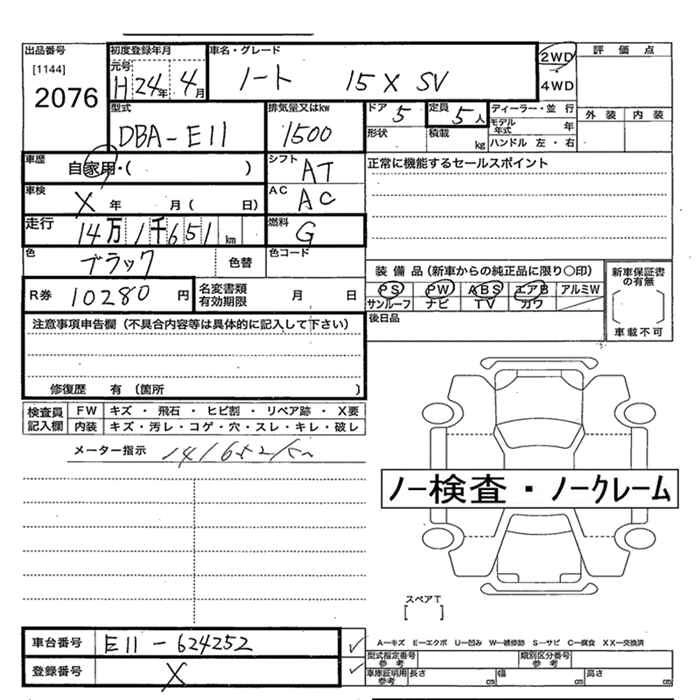 出品番号
[1144]
2076
初度登録年月
元号
H 24年 4月
車名・グレード
ノート 15X SV
2WD
4WD
評価点
外装 内装
型式
DBA-E11
排気量又はkw
1500
ドア 5
形状
定員 5人
積載 kg
ディーラー・並行
モデル年式 年
ハンドル 左・右
車歴
自家用・( )
シフト
AT
正常に機能するセールスポイント
車検
X 年 月( 日)
AC
AC
走行
14万1千651km
燃料
G
色
ブラック 色替
色コード
装備品(新車からの純正品に限り○印)
PS PW ABS エアB アルミW
サンルーフ ナビ TV カワ
後日品
新車保証書の有無
[ ]
車載不可
R券 10280円
名変書類有効期限 月 日
注意事項申告欄(不具合内容等は具体的に記入して下さい)
修復歴 有(箇所 )
検査員記入欄
FW キズ・飛石・ヒビ割・リペア跡・X要
内装 キズ・汚レ・コゲ・穴・スレ・キレ・破レ
メーター指示 141652km
ノー検査・ノークレーム
スペアT
[ ]
車台番号 E11-624252
登録番号 X
A—キズ E—エクボ U—凹み W—補修跡 S—サビ C—腐食 XX—交換済
型式指定番号 参考
類別区分番号 参考
車庫証明用 参考 長さ cm 幅 cm 高さ cm